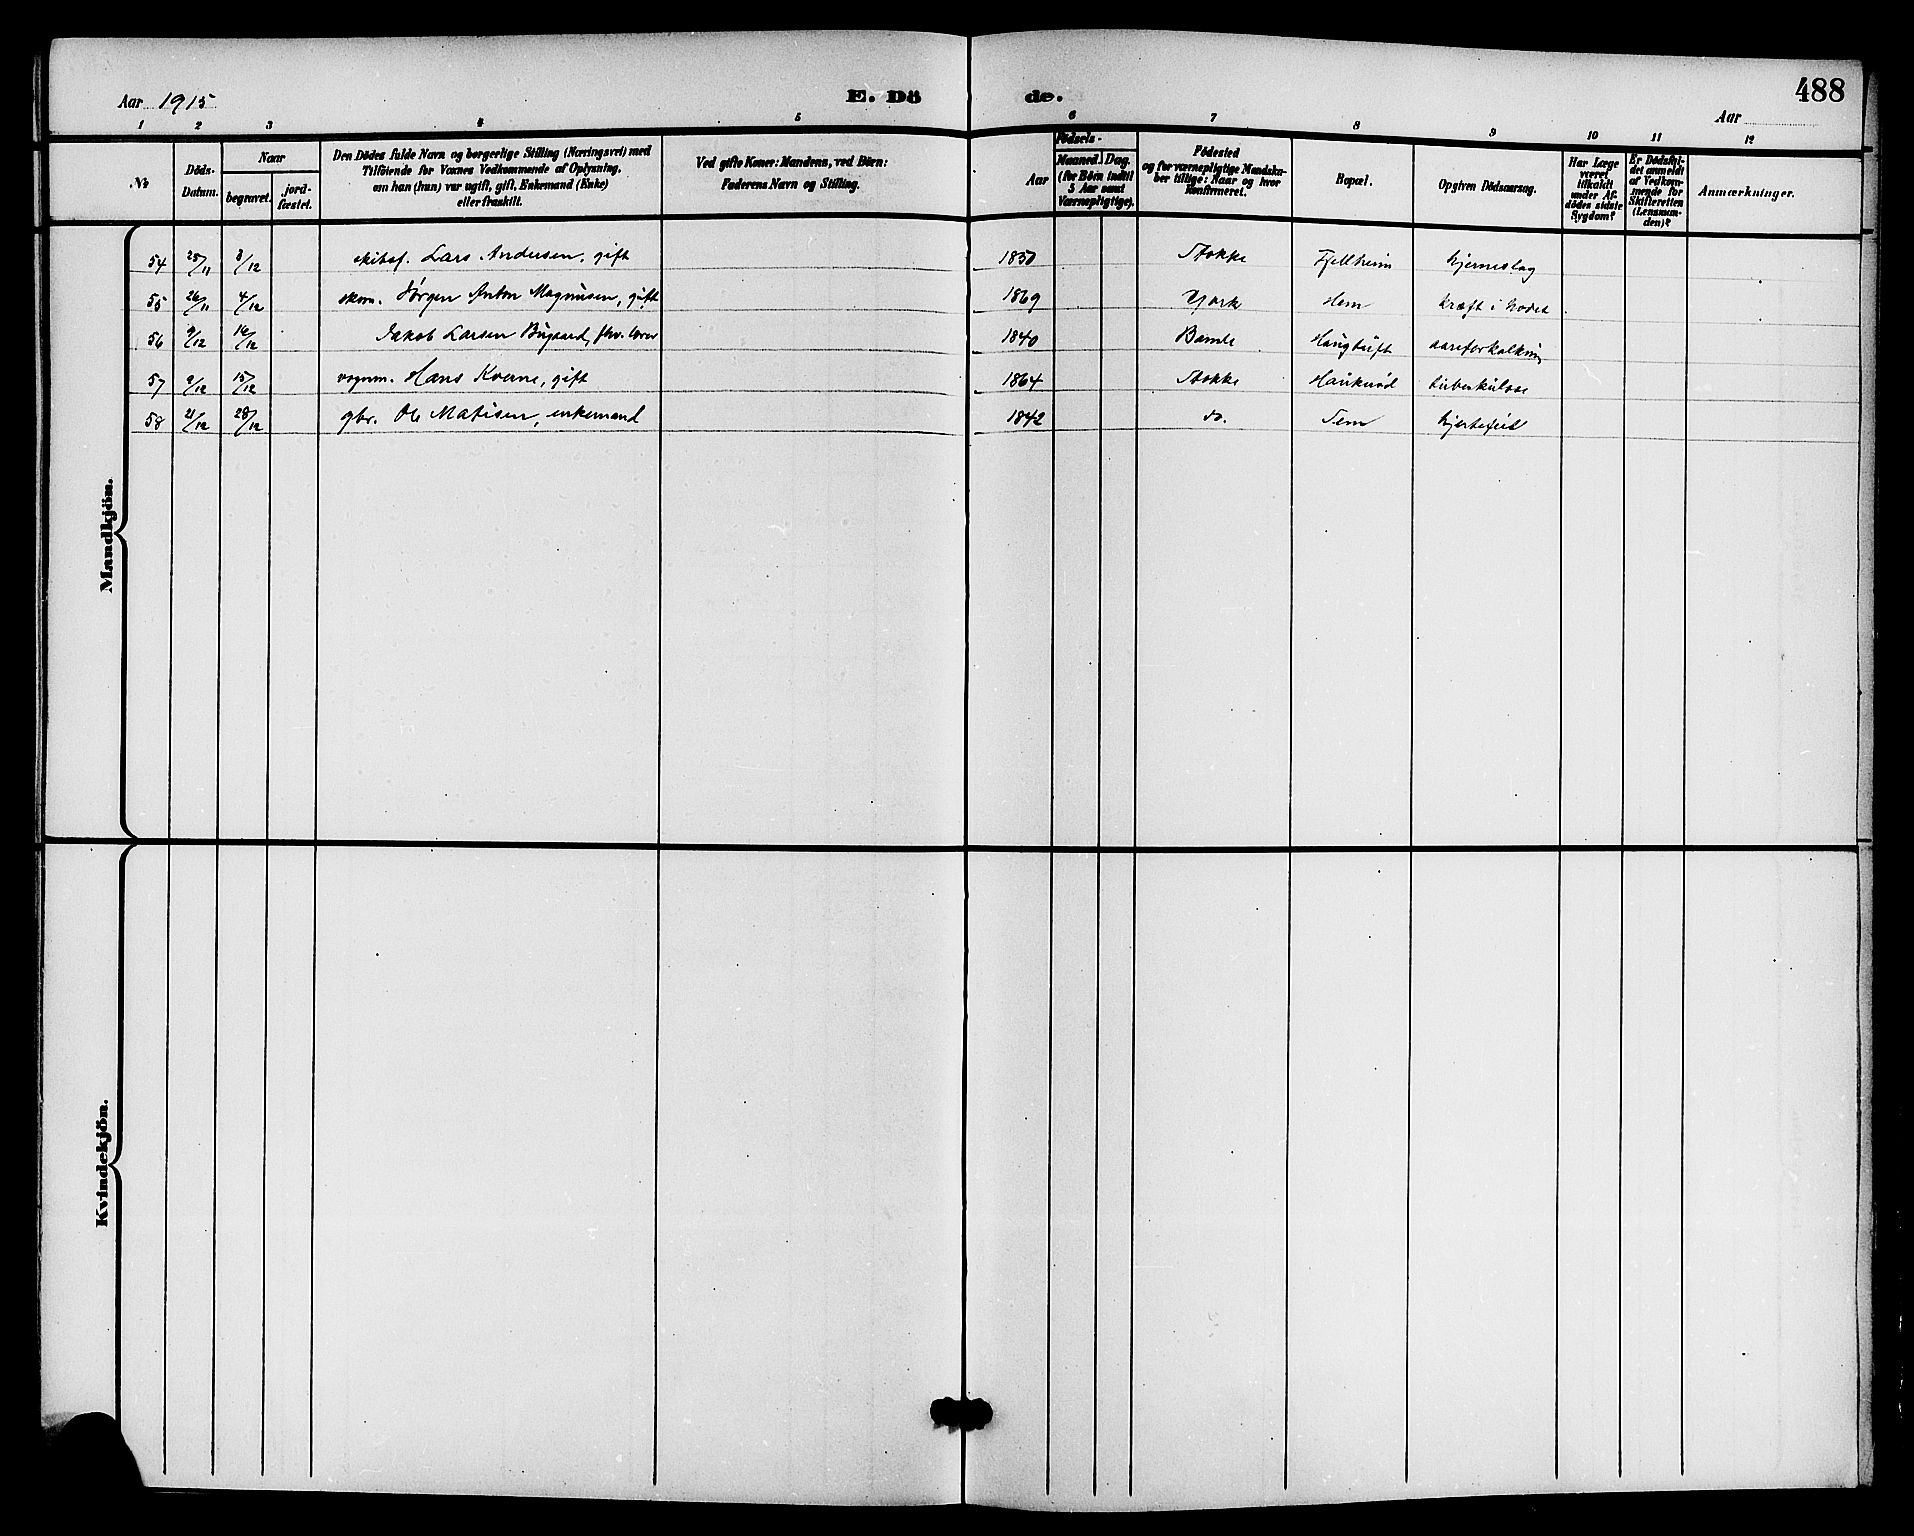 488
Aar 1915
E. Dö de.
Aar
1 2 3 4 5 6 7 8 9 10 11 12
No
Döds-Datum.
Naar
begravet.
jord-fæstet.
Den Dödes fulde Navn og borgerlige Stilling (Næringsvei) med
Tilföiende for Voxnes Vedkommende af Oplysning,
om han (hun) var ugift, gift, Enkemand (Enke)
eller fraskilt.
Ved gifte Koner: Mandens, ved Börn:
Faderens Navn og Stilling.
Födsels-
Aar
Maaned. Dag.
(for Börn indtil
5 Aar samt
Værnepligtige).
Födested
og for værnepligtige Mandska-
ber tillige: Naar og hvor
Konfirmeret.
Bopæl.
Opgiven Dödsaarsag.
Har Læge
været
tilkaldt
under Af-
dödes sidste
Sygdom?
Er Dödsfal-
det anmeldt
af Vedkom-
mende for
Skifteretten
(Lensman-
den)?
Anmærkninger.
Mandkjön.
54 25/11 3/12 Lars Andersen, gift 1850 Stokke Fjellheim hjerneslag
55 26/11 4/12 skom. Jørgen Anton Magnusen, gift 1869 Hem kræft i hodet
56 9/12 16/12 Jakob Larsen Bugaard, fhv. 1840 Bamle Haugtuft aareforkalkning
57 9/12 15/12 vognm. Hans Kverne, gift 1864 Stokke Haukerød tuberkulose
58 21/12 28/12 gbr. Ole Matisen, enkemand 1842 do. Sem hjertefeil
Kvindekjön.